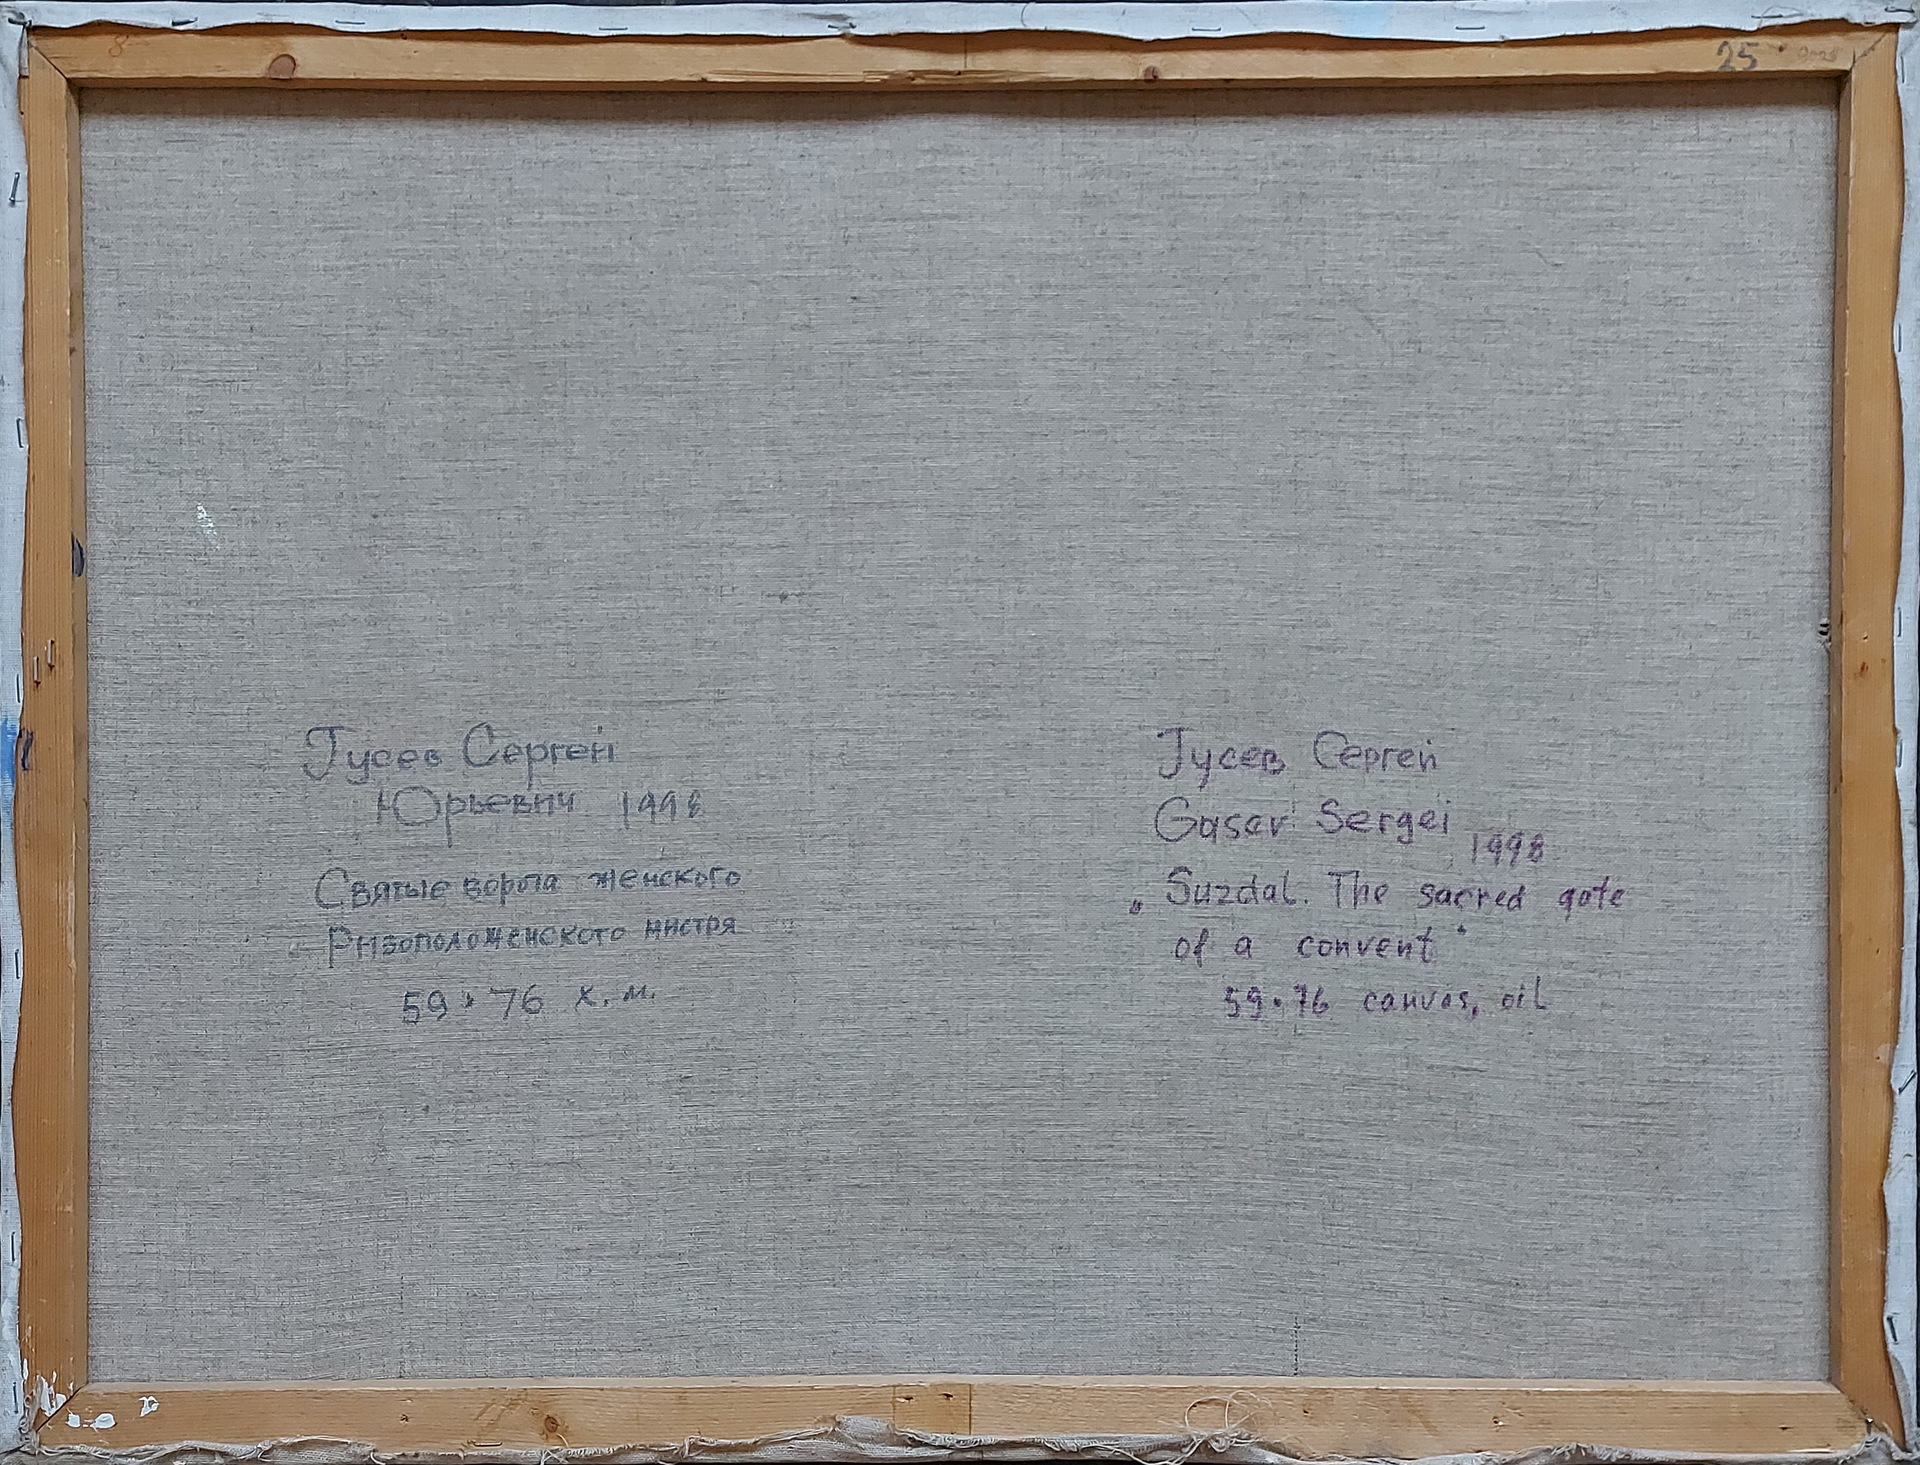 25
Гусев Сергей
Юрьевич 1998
Святые ворота женского
Ризоположенского мнстря
59 • 76 х. м.
Гусев Сергей
Gusev Sergei
1998
„ Suzdal. The sacred gate
of a convent "
59 • 76 canvas, oil